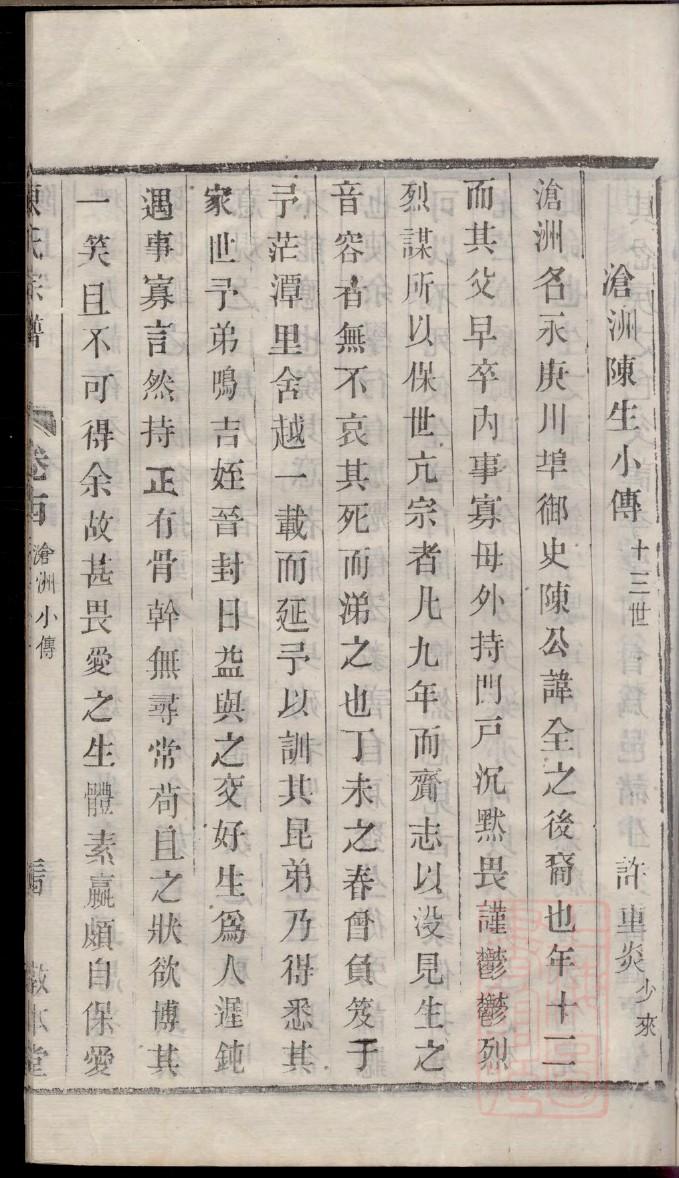 滄洲陳生小傳 十三世 許重炎 少來
滄洲名永庚川埠御史陳公諱全之後裔也年十二
而其父早卒内事寡母外持門戸沉默畏謹鬱鬱烈
烈謀所以保世亢宗者凡九年而齎志以没見生之
音容者無不哀其死而涕之也丁未之春曾負笈于
予茫潭里舍越一載而延予以訓其昆弟乃得悉其
家世予弟鳴吉姪晉封日益與之交好生爲人遲鈍
遇事寡言然持正有骨幹無尋常苟且之狀欲博其
一笑且不可得余故甚畏愛之生體素羸頗自保愛
陳氏宗譜 卷 滄洲小傳 敬本堂